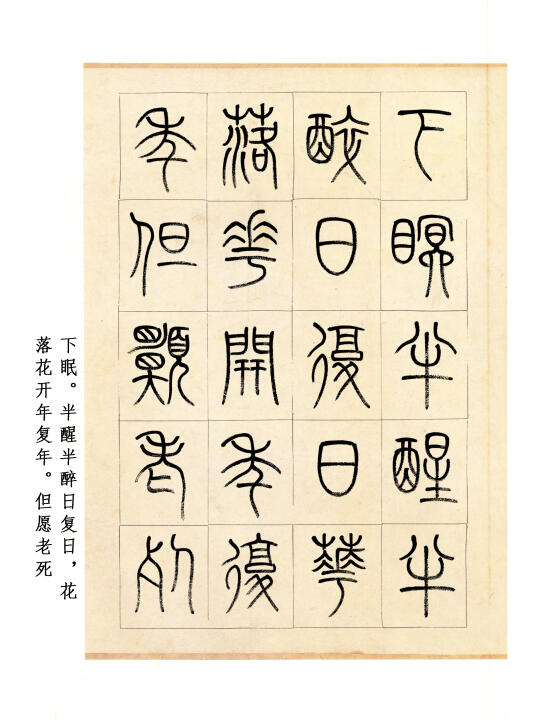 下瞑半醒半
醉日復日華
落華開年復
年但願老死
下眠。半醒半醉日复日，花
落花开年复年。但愿老死